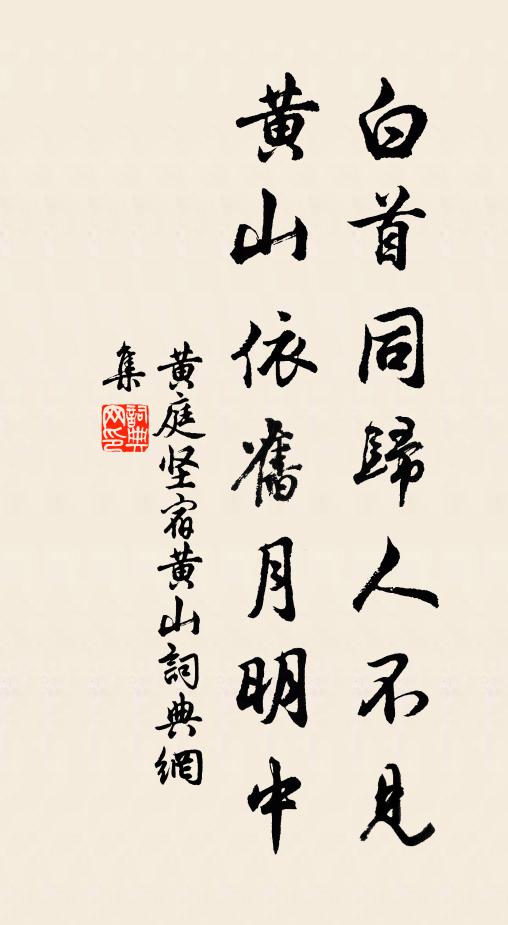 白首同歸人不見
黃山依舊月明中
黃庭坚宿黃山詞典網
集
詞典
网印